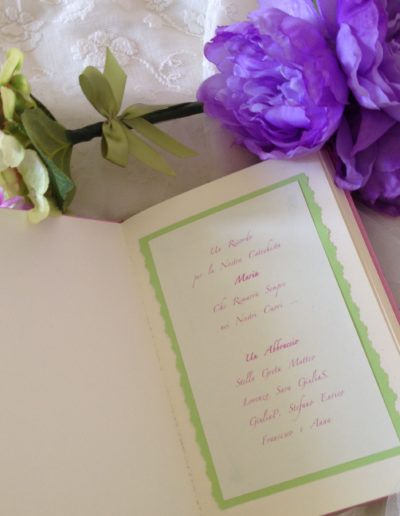 Un Ricordo
per la Nostra Catechista
Maria
Che Rimarrà Sempre
nei Nostri Cuori ...
Un Abbraccio
Stella Greta Matteo
Lorenzo Sara GiuliaS.
GiuliaP. Stefano Enrico
Francesco e Anna